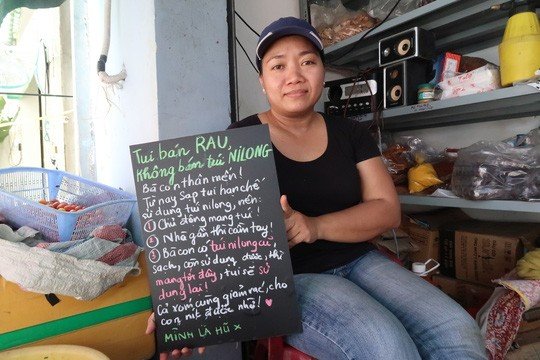 Tui bán RAU,
không bán túi NILONG
Bà con thân mến!
Từ nay Sạp tui hạn chế
sử dụng túi nilong, nên:
① Chủ động mang túi!
② Nhà gần thì cầm tay!
③ Bà con có túi nilong cũ,
sạch, còn sử dụng được, thì
mang tới đây, tui sẽ sử
dụng lại!
Cả xóm cùng giảm rác, cho
con nít đỡ đẻn nhá!
MÌNH LÀ HŨ x